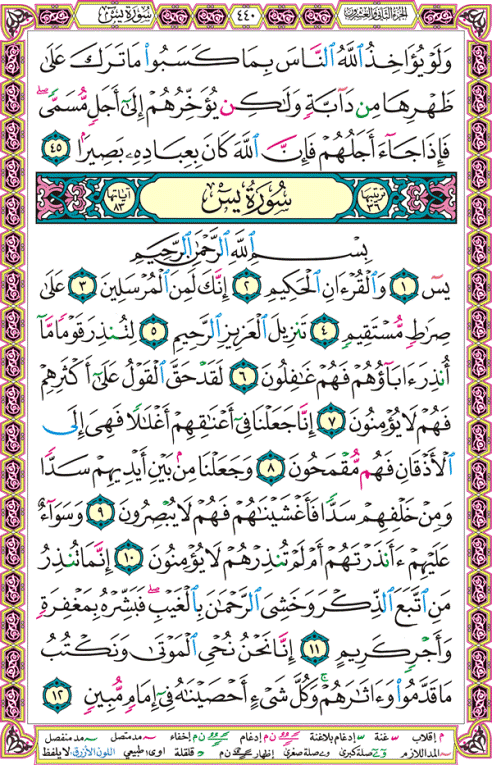 سُورَةُ يسٓ ٤٤٠ الجزء الثاني والعشرون
وَلَوْ يُؤَاخِذُ ٱللَّهُ ٱلنَّاسَ بِمَا كَسَبُوا۟ مَا تَرَكَ عَلَىٰ
ظَهْرِهَا مِن دَآبَّةٍ وَلَٰكِن يُؤَخِّرُهُمْ إِلَىٰٓ أَجَلٍ مُّسَمًّى ۖ
فَإِذَا جَآءَ أَجَلُهُمْ فَإِنَّ ٱللَّهَ كَانَ بِعِبَادِهِۦ بَصِيرًۢا ٤٥
ترتيبها ٣٦ سُورَةُ يسٓ آياتها ٨٣
بِسْمِ ٱللَّهِ ٱلرَّحْمَٰنِ ٱلرَّحِيمِ
يسٓ ١ وَٱلْقُرْءَانِ ٱلْحَكِيمِ ٢ إِنَّكَ لَمِنَ ٱلْمُرْسَلِينَ ٣ عَلَىٰ
صِرَٰطٍ مُّسْتَقِيمٍ ٤ تَنزِيلَ ٱلْعَزِيزِ ٱلرَّحِيمِ ٥ لِتُنذِرَ قَوْمًا مَّآ
أُنذِرَ ءَابَآؤُهُمْ فَهُمْ غَٰفِلُونَ ٦ لَقَدْ حَقَّ ٱلْقَوْلُ عَلَىٰٓ أَكْثَرِهِمْ
فَهُمْ لَا يُؤْمِنُونَ ٧ إِنَّا جَعَلْنَا فِىٓ أَعْنَٰقِهِمْ أَغْلَٰلًا فَهِىَ إِلَى
ٱلْأَذْقَانِ فَهُم مُّقْمَحُونَ ٨ وَجَعَلْنَا مِنۢ بَيْنِ أَيْدِيهِمْ سَدًّا
وَمِنْ خَلْفِهِمْ سَدًّا فَأَغْشَيْنَٰهُمْ فَهُمْ لَا يُبْصِرُونَ ٩ وَسَوَآءٌ
عَلَيْهِمْ ءَأَنذَرْتَهُمْ أَمْ لَمْ تُنذِرْهُمْ لَا يُؤْمِنُونَ ١٠ إِنَّمَا تُنذِرُ
مَنِ ٱتَّبَعَ ٱلذِّكْرَ وَخَشِىَ ٱلرَّحْمَٰنَ بِٱلْغَيْبِ ۖ فَبَشِّرْهُ بِمَغْفِرَةٍ
وَأَجْرٍ كَرِيمٍ ١١ إِنَّا نَحْنُ نُحْىِ ٱلْمَوْتَىٰ وَنَكْتُبُ
مَا قَدَّمُوا۟ وَءَاثَٰرَهُمْ ۚ وَكُلَّ شَىْءٍ أَحْصَيْنَٰهُ فِىٓ إِمَامٍ مُّبِينٍ ١٢
م إقلاب غنة إدغام بلاغنة ن م إدغام ن م إخفاء مد متصل مد منفصل
المد اللازم صلة كبرى صلة صغرى إظهار ن م قلقلة اوى طبيعي اللون الأزرق لا يلفظ